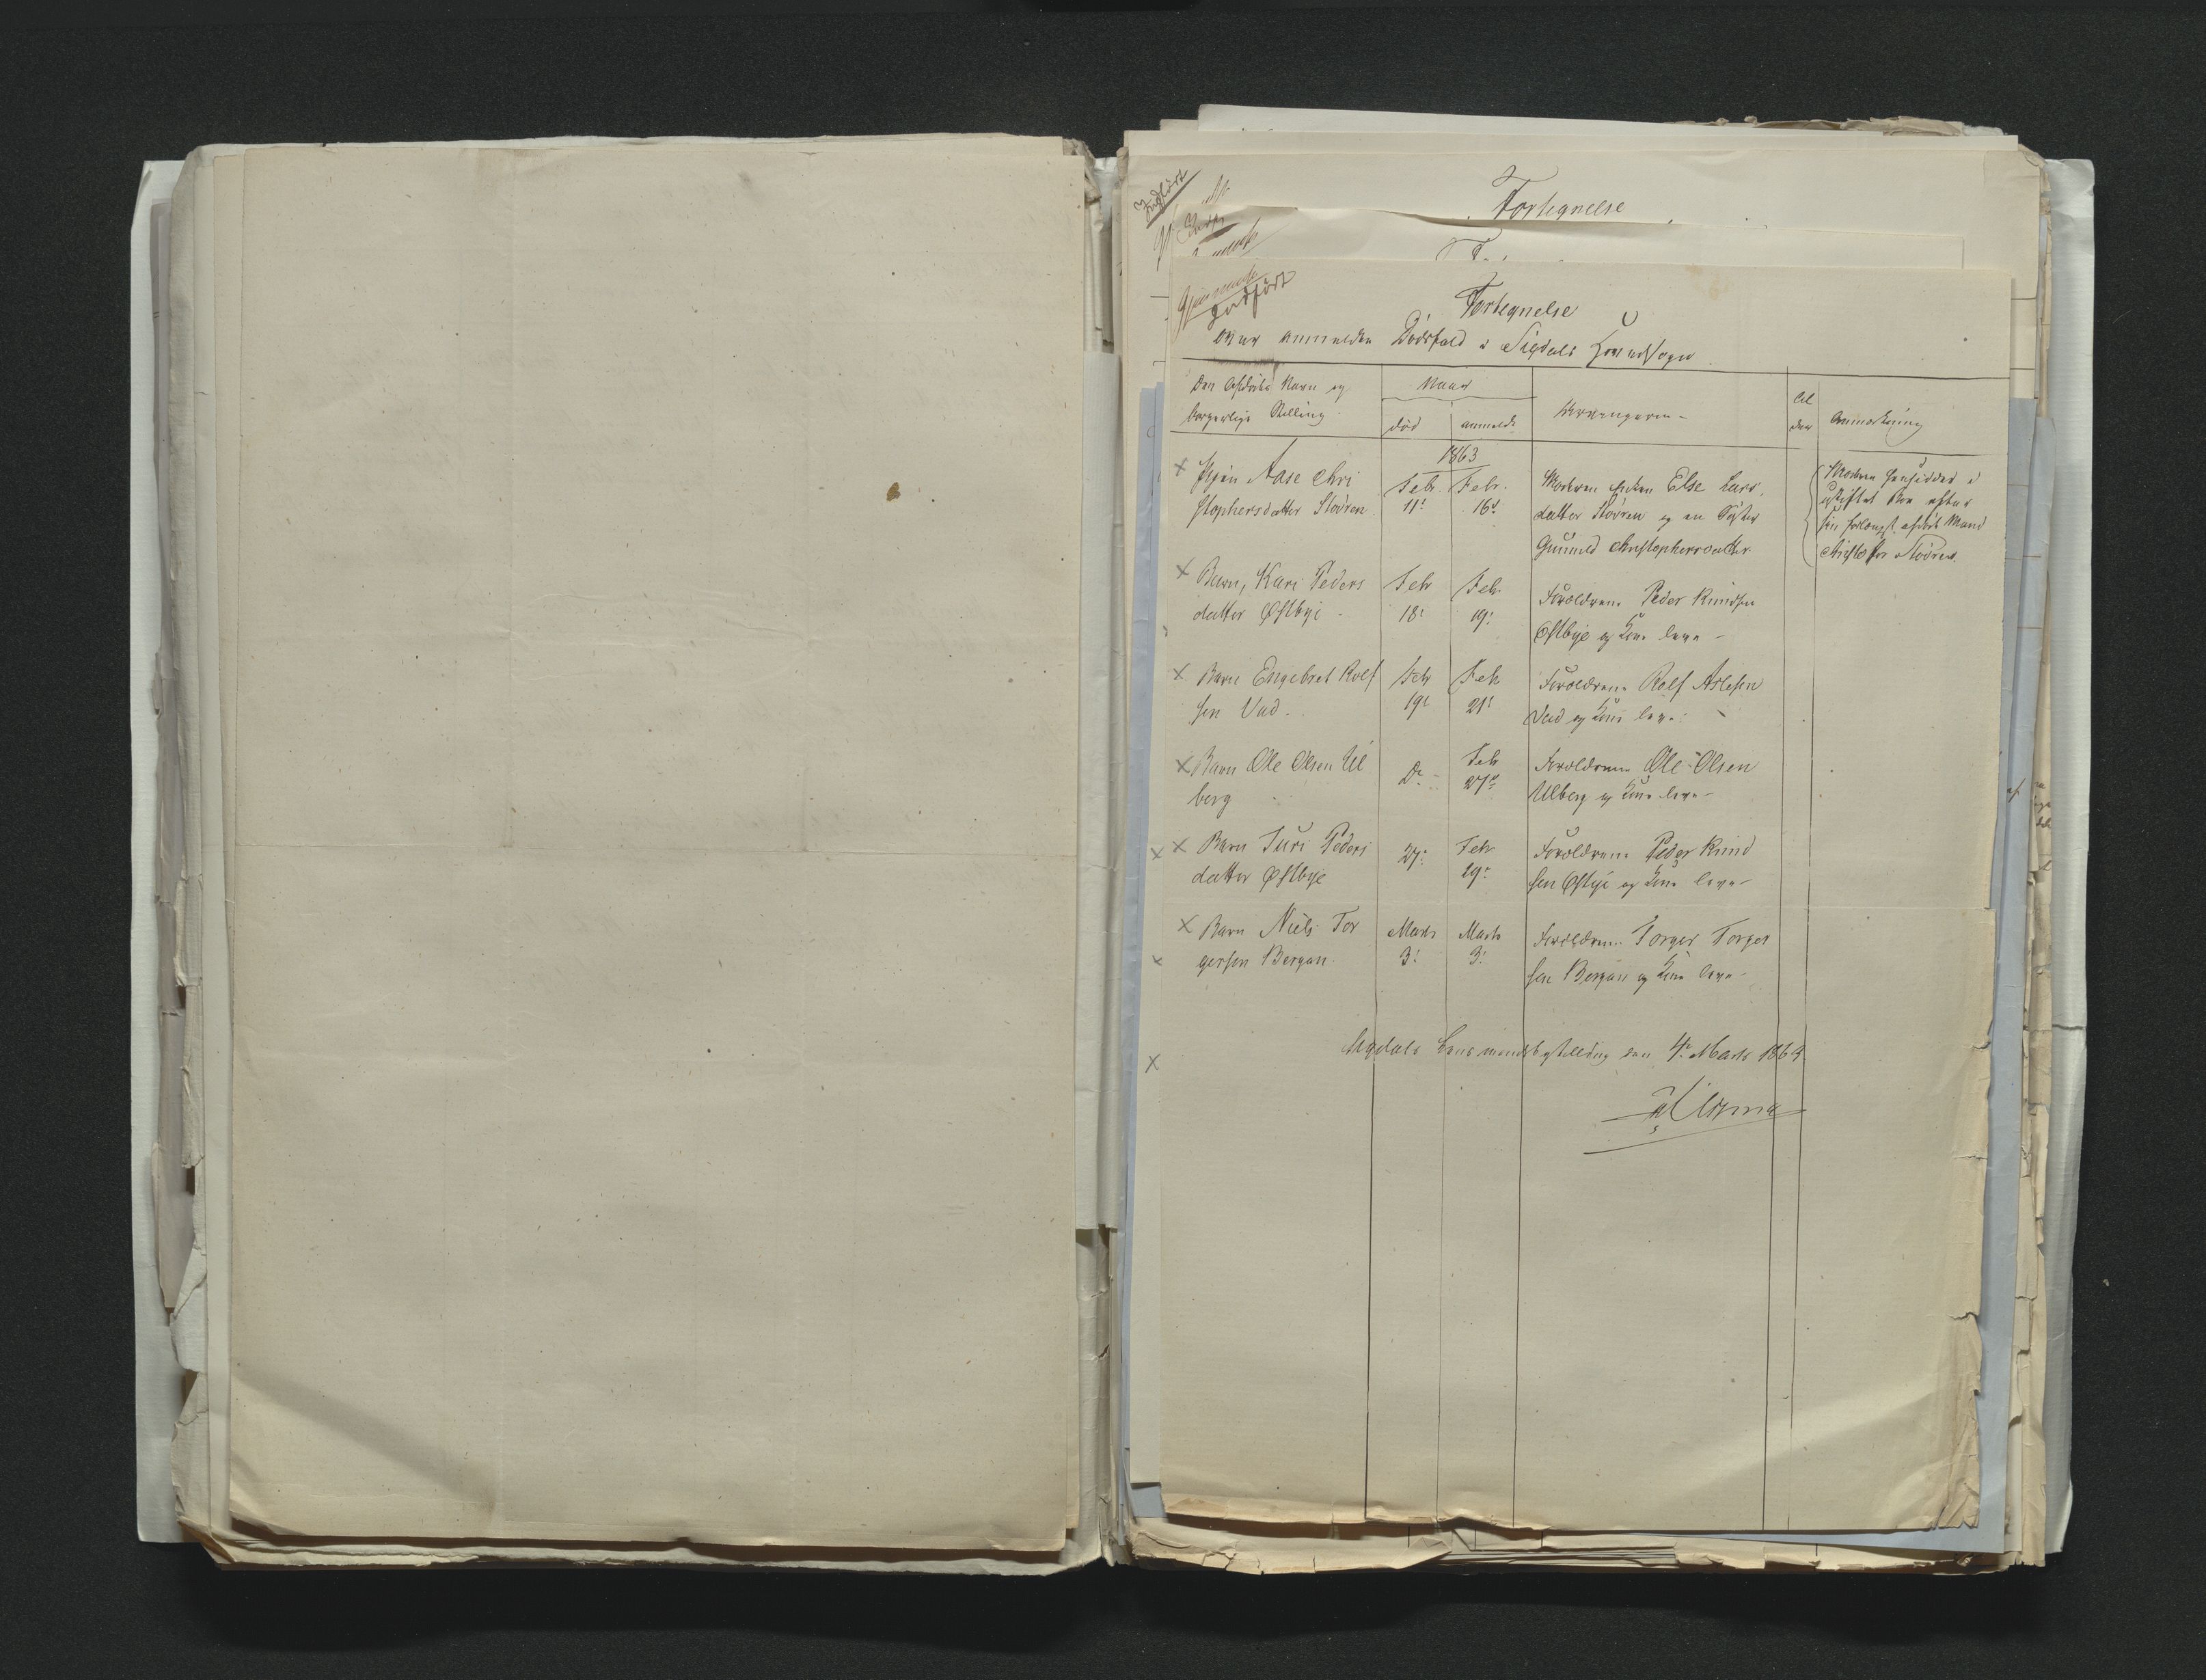 Indført
Fortegnelse
Indført
Fortegnelse
over anmeldte Dødsfald i Sigdals Hovedsogn
Den Afdødes Navn og
borgerlige Stilling
Naar
død
anmeldt
Arvingerne
Al
der
Anmærkning
1863
Pigen Aase Chri
stophersdatter Støvren
Febr.
11t
Febr.
16d
Moderen Enken Else Lars
datter Støvren og en Søster
Gunild Christophersdatter
Moderen hensidder i
uskiftet Bo efter
sin forlængst afdøde Mand
Christofer Støvren
Barn, Kari Peders
datter Østbye
Feb
18t
Feb
19t
Forældrene Peder Knudsen
Østbye og Kone leve
Barn Engebret Rolf
sen Vad
Feb
19t
Feb
21t
Forældrene Rolf Aslesen
Vad og Kone leve
Barn Ole Olsen Ul
berg
Do
Feb
27de
Forældrene Ole Olsen
Ulberg og Kone leve
Barn Turi Peders
datter Østbye
27.
Feb
29.
Forældrene Peder Knud
sen Østbye og Kone leve
Barn Niels Tor
gersen Bergan
Marts
3.
Marts
3.
Forældrene Torger Torger
sen Bergan og Kone leve
Sigdals Lensmandsbestilling den 4de Marts 1863